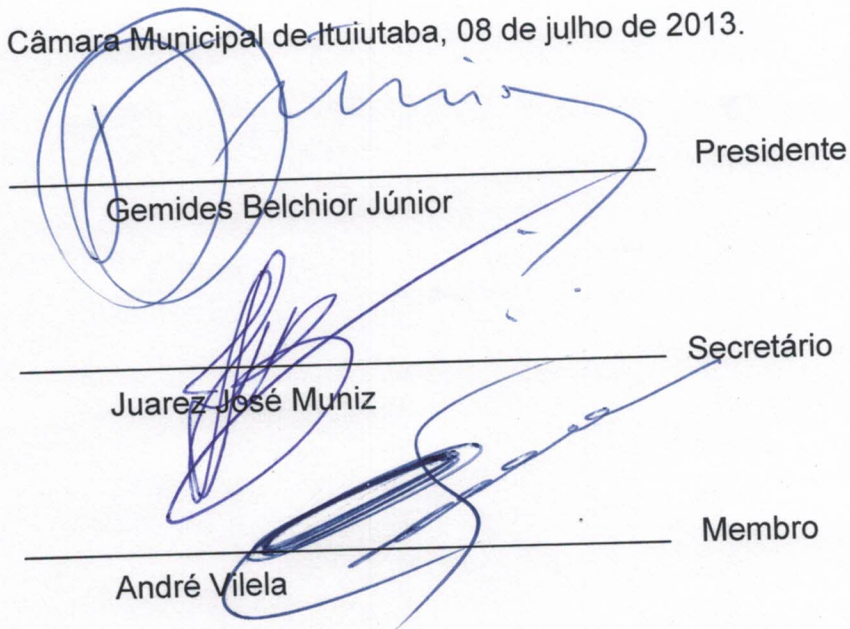 Câmara Municipal de Ituiutaba, 08 de julho de 2013.
Presidente
Gemides Belchior Júnior
Secretário
Juarez José Muniz
Membro
André Vilela